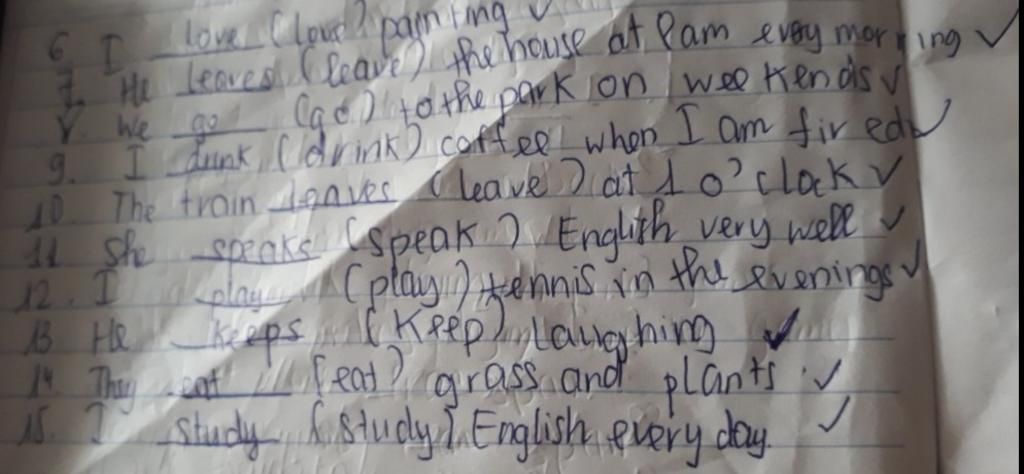 6. I love (love) painting ✓
7. He leaves (leave) the house at 8am every morning ✓
8. We go (go) to the park on weekends ✓
9. I drink (drink) coffee when I am fired ✓
10. The train leaves (leave) at 1 o'clock ✓
11 She speaks (speak) English very well ✓
12. I play (play) tennis in the evenings ✓
13 He keeps (Keep) laughing ✓
14. They eat (eat) grass and plants. ✓
15. I study (study) English every day. ✓